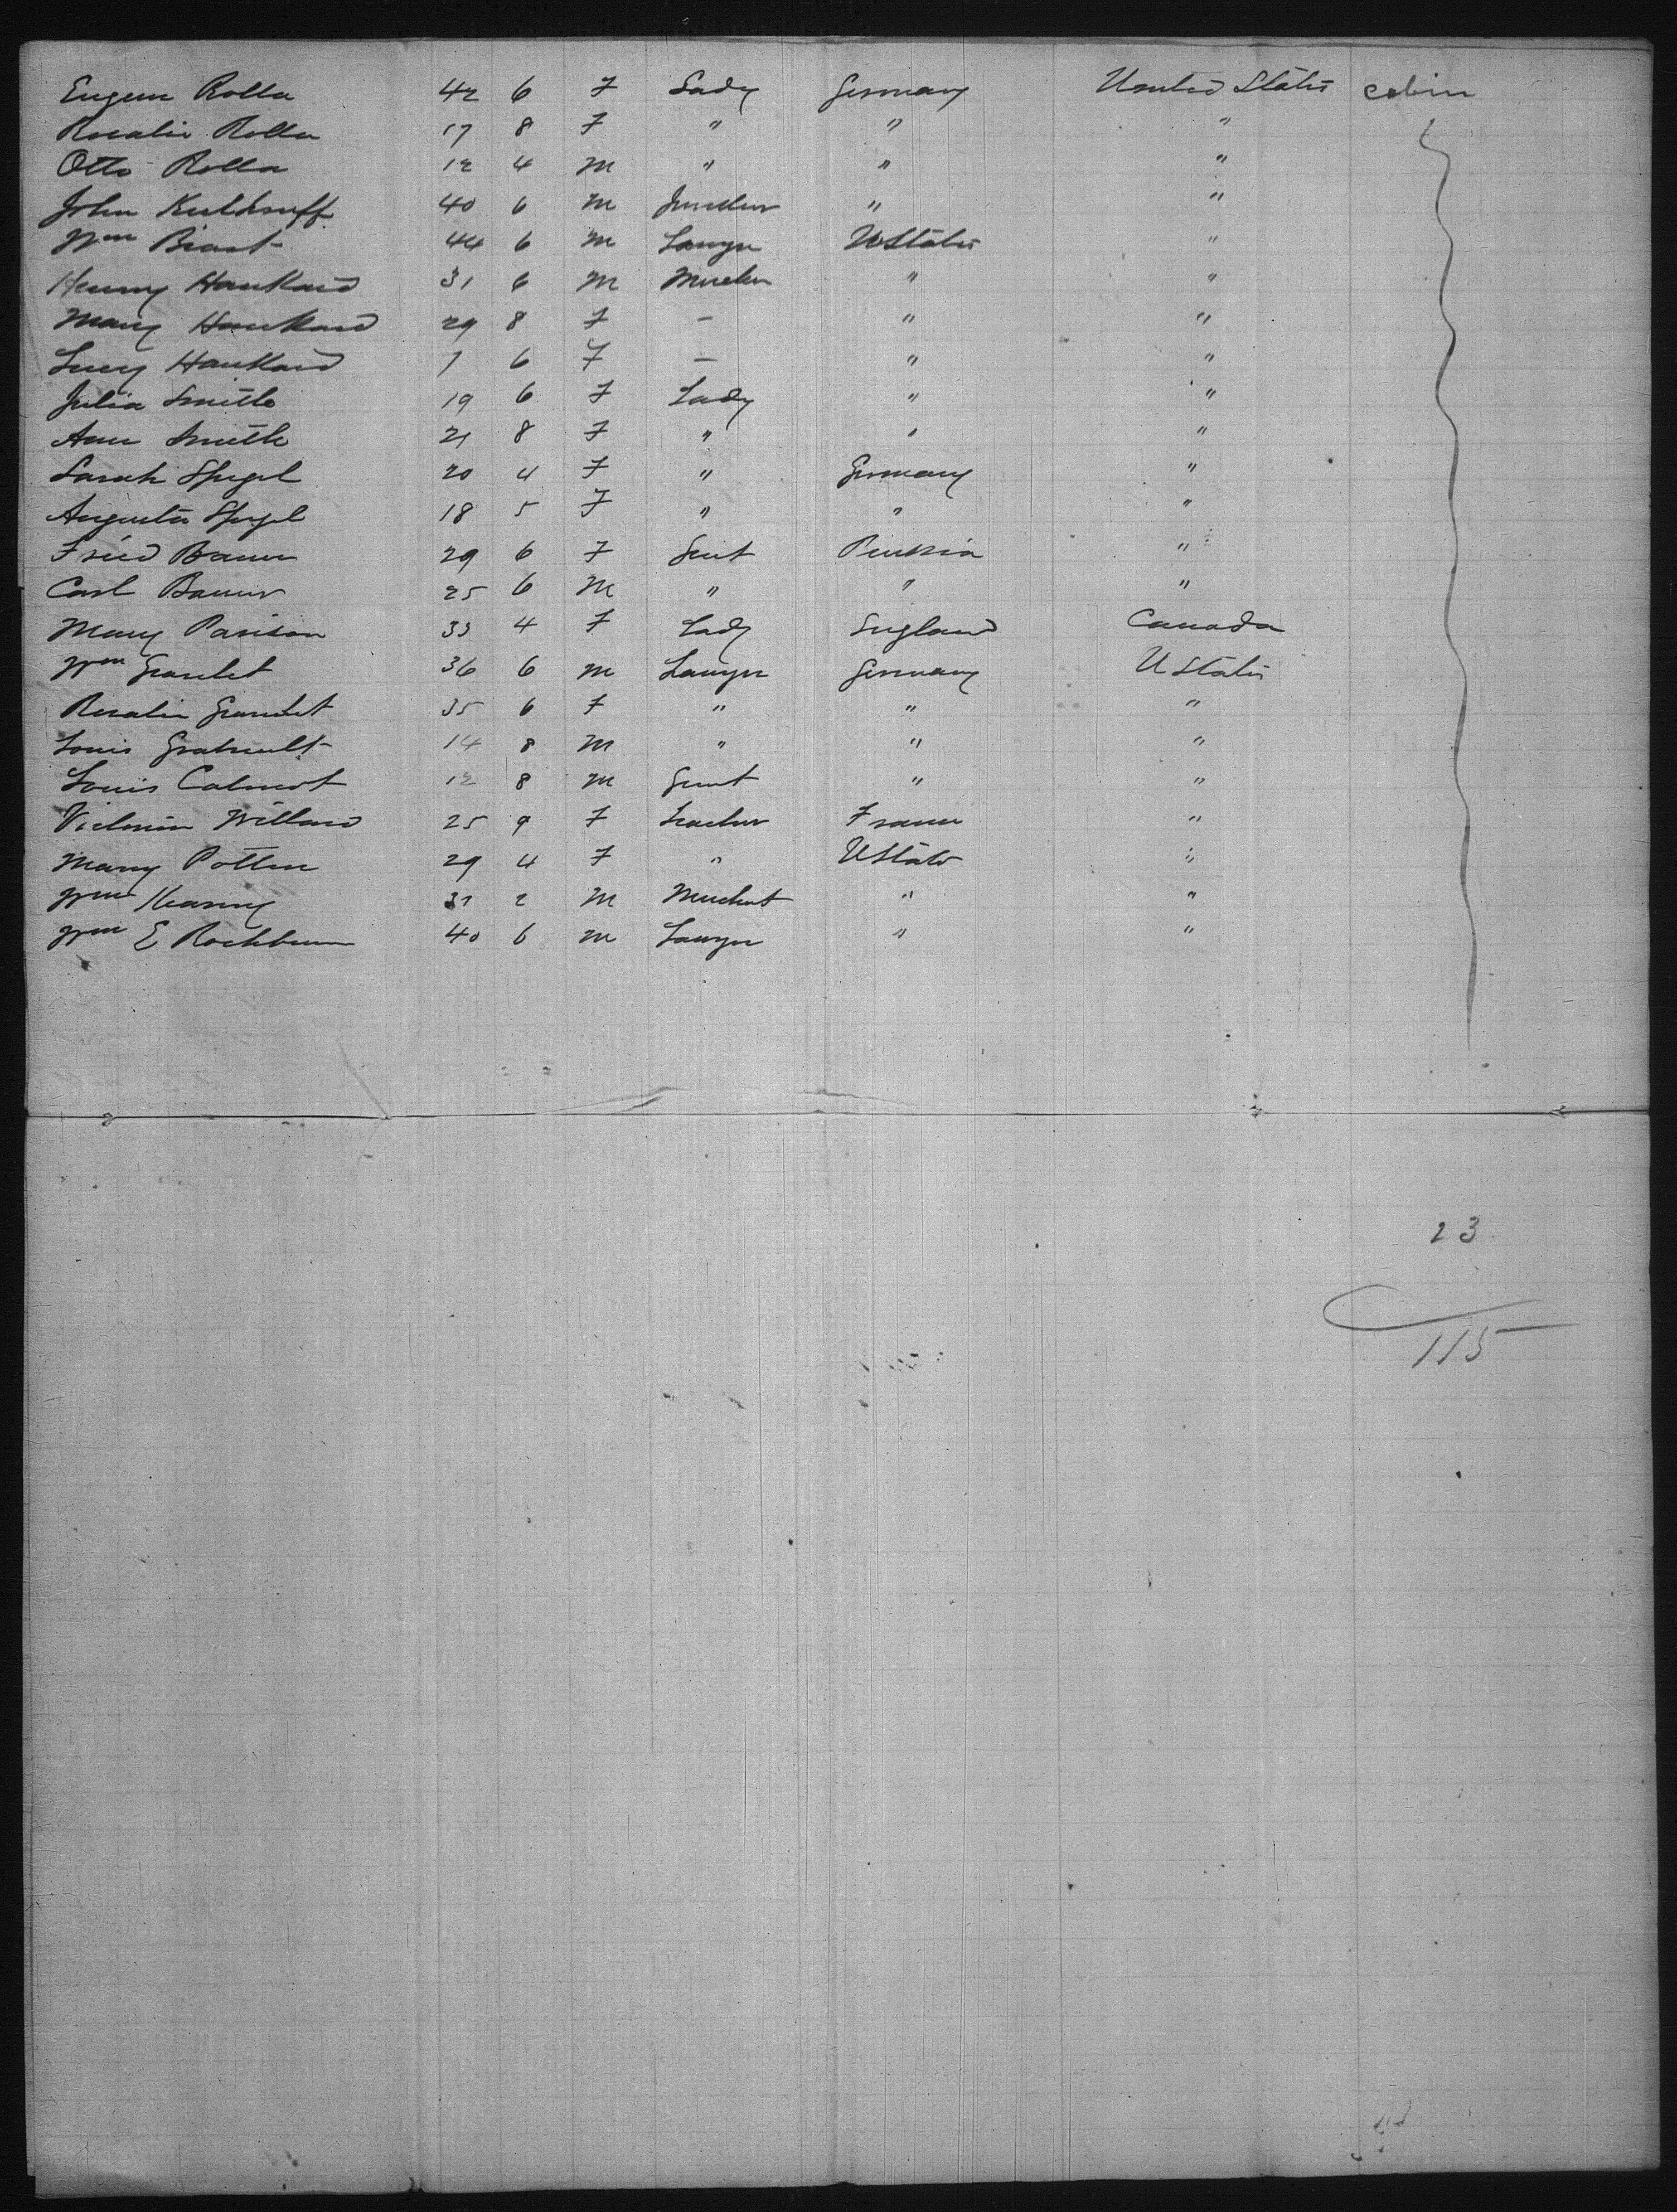 Eugene Rolla 42 6 F Lady Germany United States cabin
Rosalie Rolla 17 8 F " " "
Otto Rolla 12 4 M " " "
John 40 6 M " "
Wm 44 6 M Lawyer U States "
Henry Hankard 31 6 M " "
Mary Hankard 29 8 F – " "
Lucy Hankard 7 6 F – " "
Julia Smith 19 6 F Lady " "
Ann Smith 21 8 F " " "
Sarah Spegel 20 4 F " Germany "
Augusta Spegel 18 5 F " " "
Fried Bauer 29 6 F Gent "
Carl Bauer 25 6 M " " "
Mary Parison 33 4 F Lady England Canada
Wm 36 6 M Lawyer Germany U States
Rosalie 35 6 F " " "
Louis 14 8 M " " "
Louis Calmot 12 8 M Gent " "
Willard 25 9 F Teacher France "
Mary Potter 29 4 F " U States "
Wm Kearny 31 2 M Merchant " "
Wm E Rockburn 40 6 M Lawyer " "
23
115